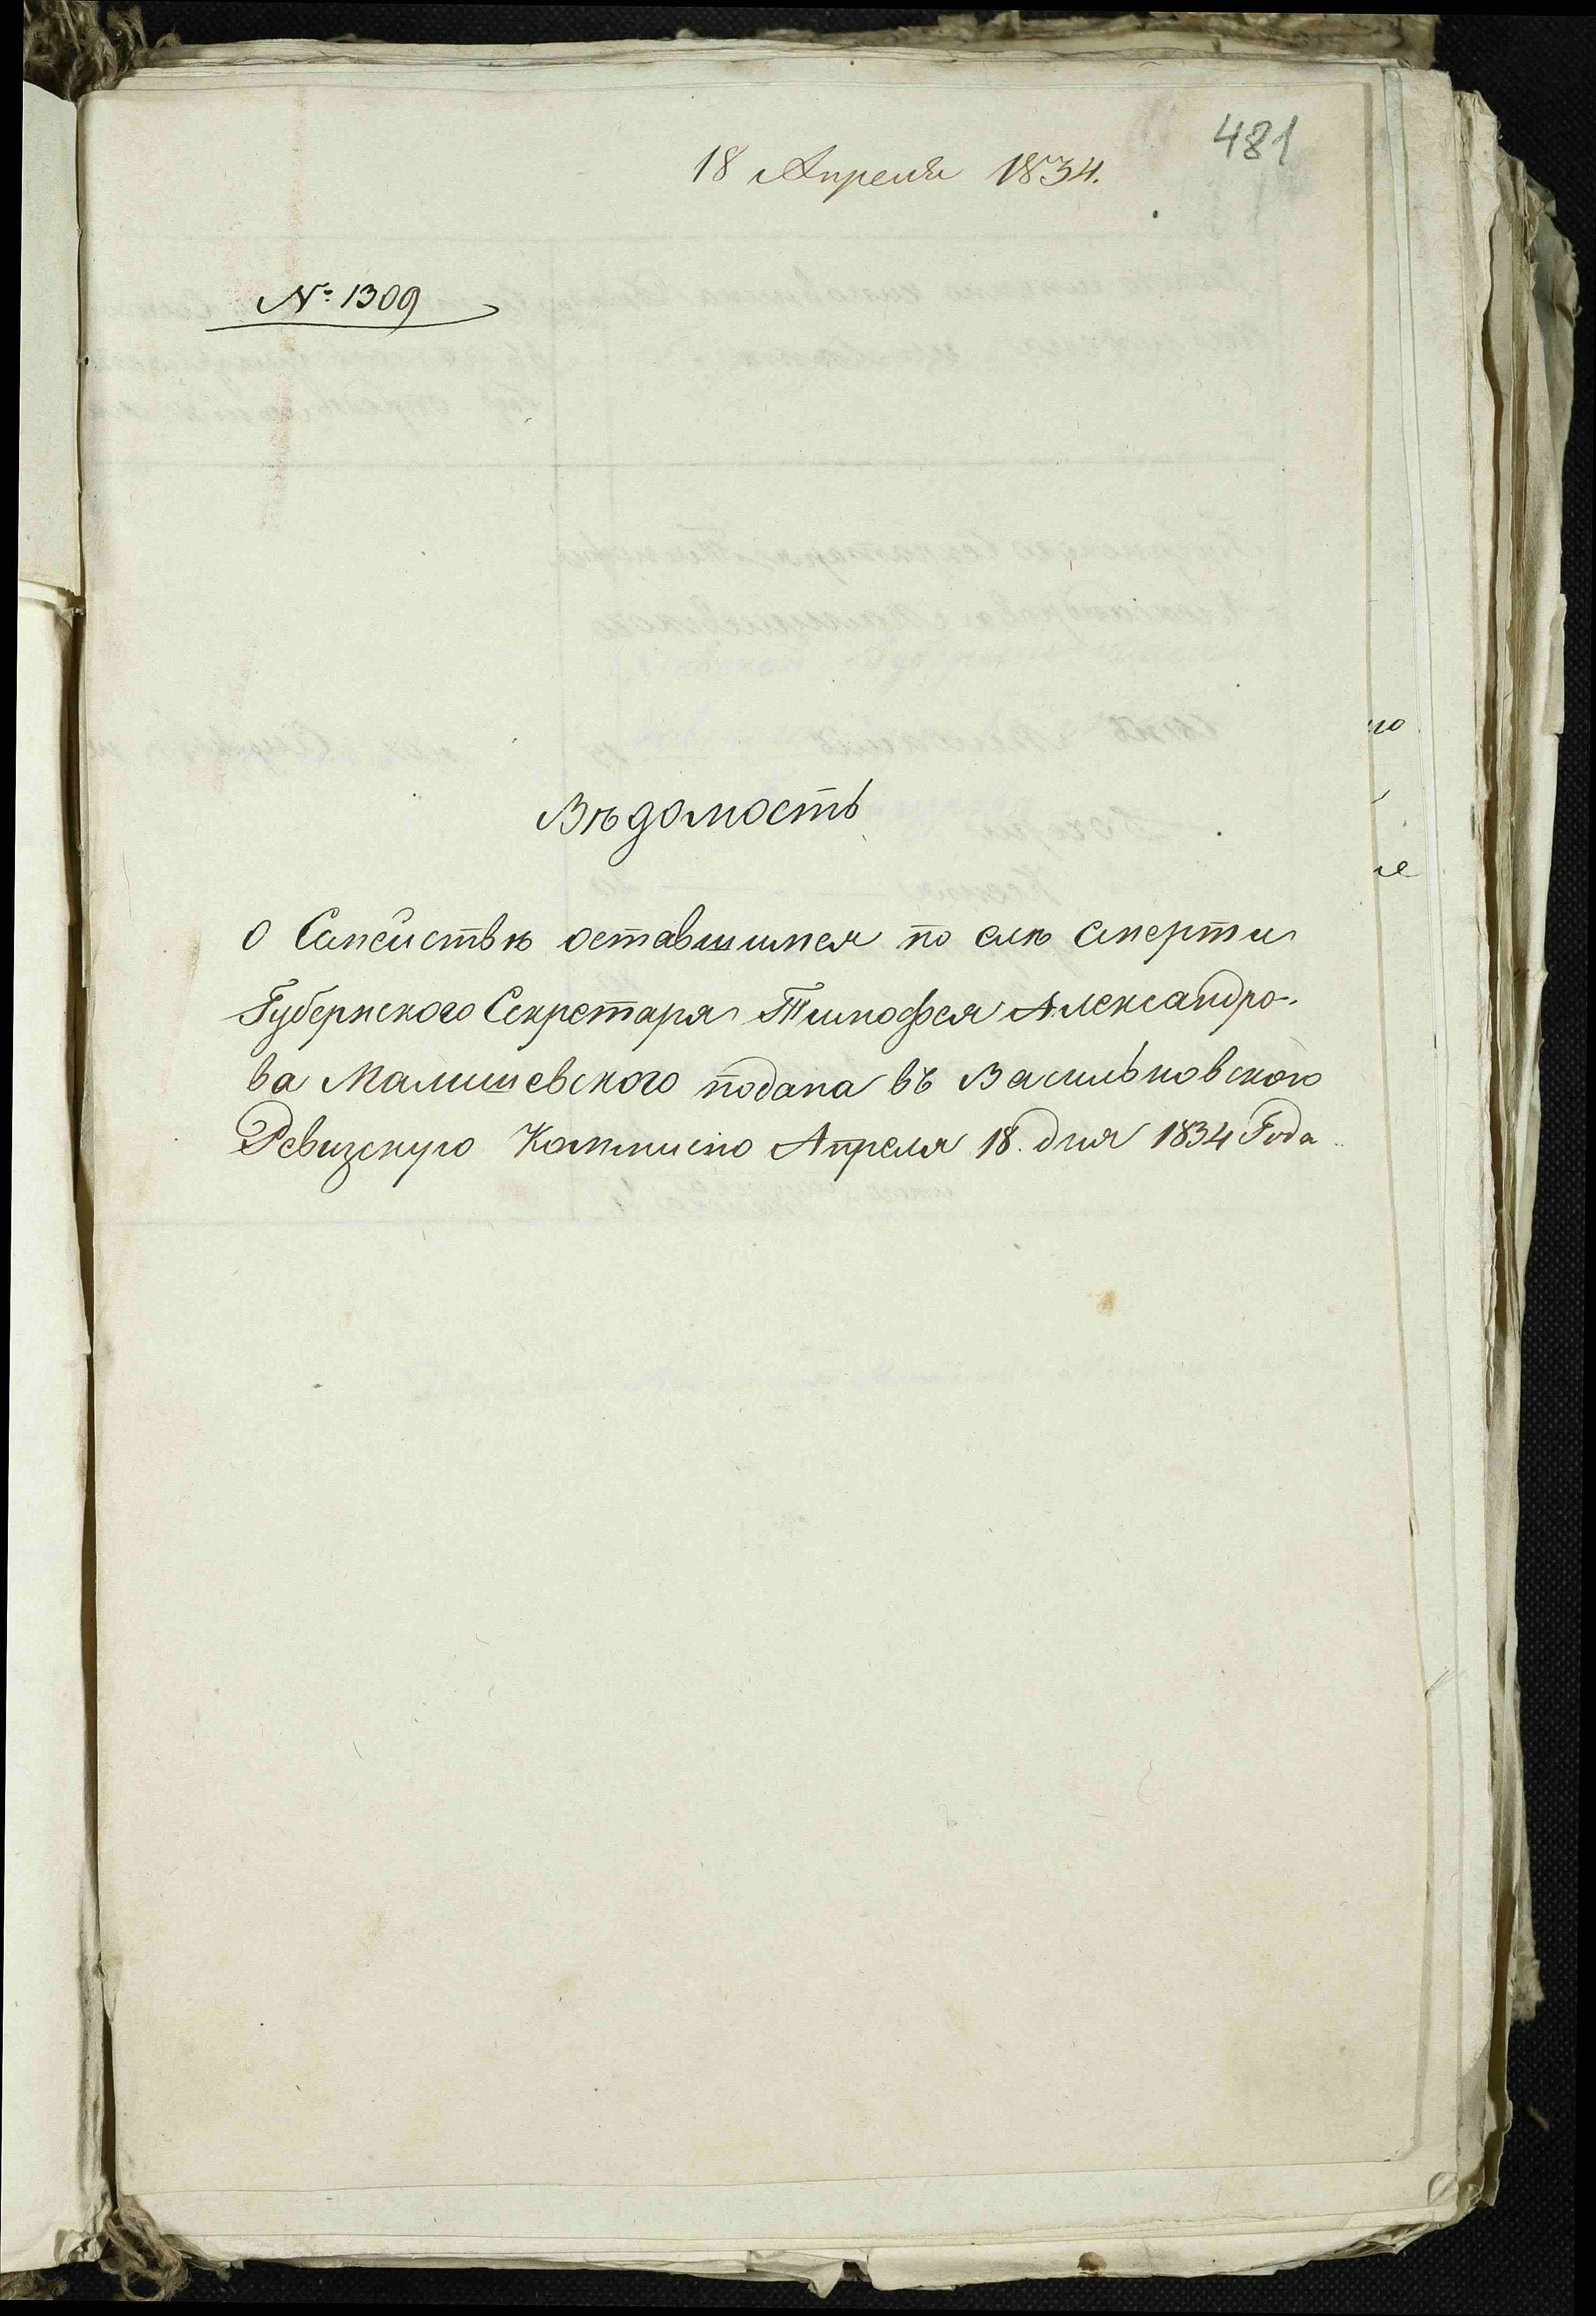 481
18 Апреля 1834.
№ 1309
Вѣдомость
о Семействѣ оставшимся по смѣ смерти
Губернского Секретаря Тимофея Александро-
ва Малишевского подана въ Васильковскою
Ревизскую Коммисию Апреля 18. дня 1834 Года